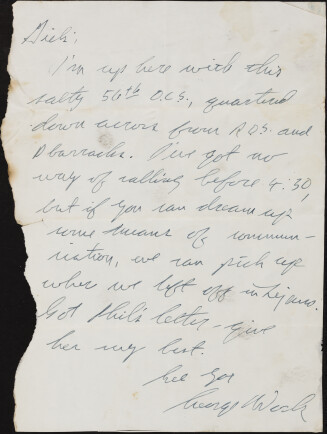 Dick:
I'm up here with this
salty 56th O.C.S., quartered
down across from A D.S. and
D barracks. I've got no
way of calling before 4:30,
but if you can dream up
some means of commun-
ication, we can pick up
where we left off in
Got Phil's letter - give
her my best.
See you
George